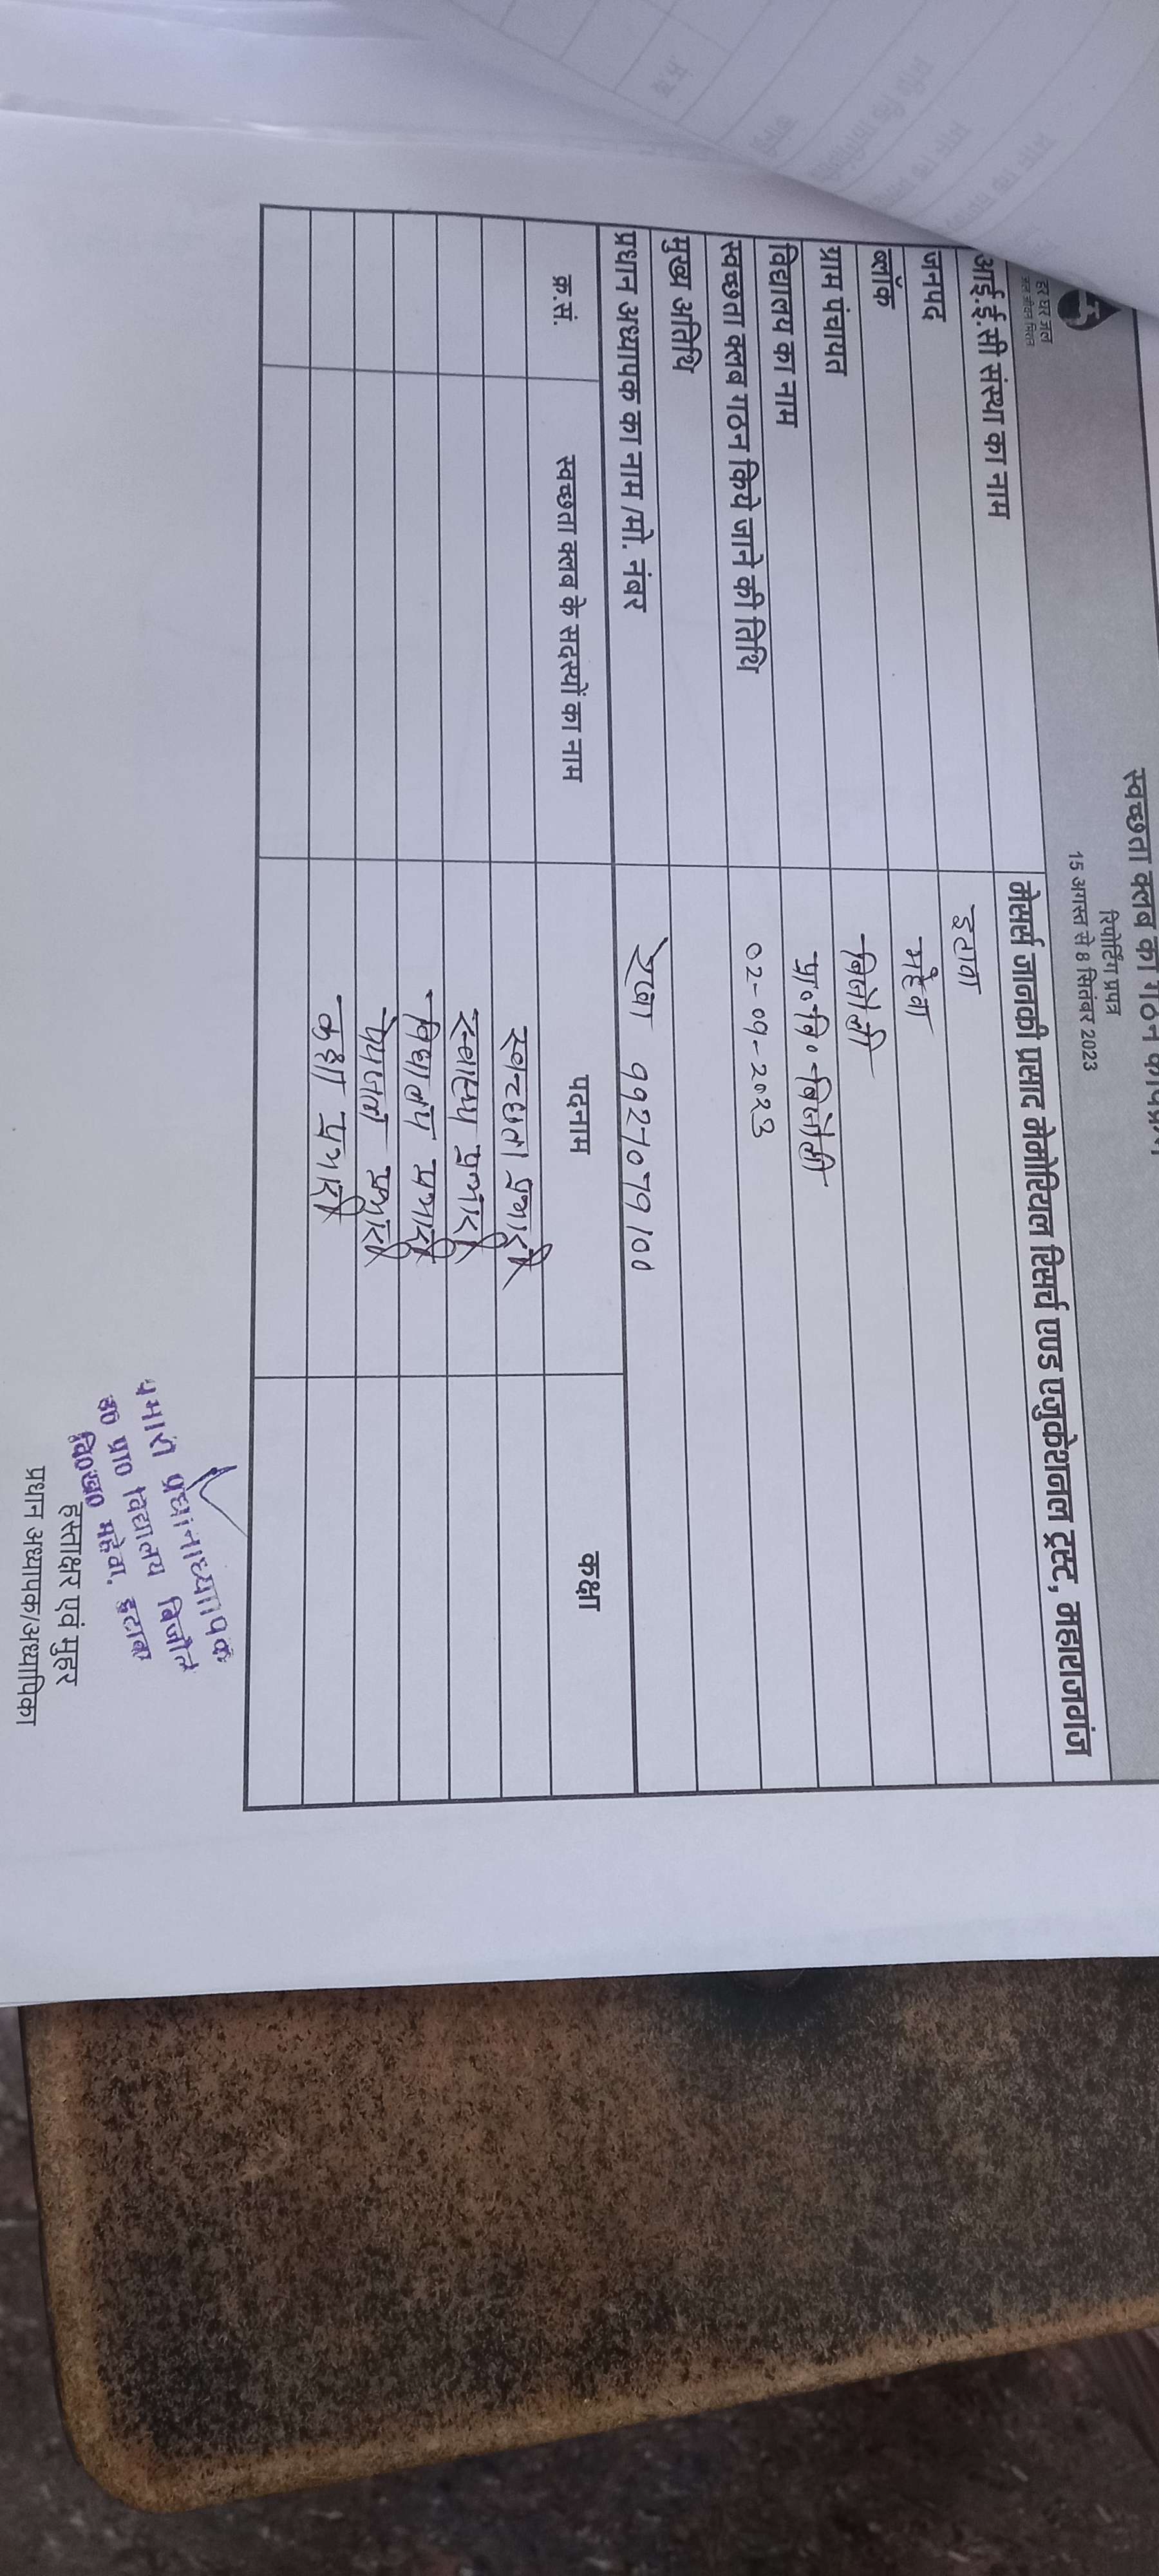 स्वच्छता क्लब का गठन कार्यक्रम
रिपोर्टिंग प्रपत्र
15 अगस्त से 8 सितंबर 2023
हर घर जल
जल जीवन मिशन
आई.ई.सी संस्था का नाम मेसर्स जानकी प्रसाद मेमोरियल रिसर्च एण्ड एजुकेशनल ट्रस्ट, महाराजगंज
जनपद इटावा
ब्लॉक महेवा
ग्राम पंचायत बिजौली
विद्यालय का नाम प्रा० वि० बिजौली
स्वच्छता क्लब गठन किये जाने की तिथि 02-09-2023
मुख्य अतिथि
प्रधान अध्यापक का नाम /मो. नंबर
क्र.सं. स्वच्छता क्लब के सदस्यों का नाम पदनाम कक्षा
स्वच्छता प्रभारी
स्वास्थ्य प्रभारी
विद्यालय प्रभारी
पेयजल प्रभारी
कक्षा प्रभारी
प्रभारी प्रधानाध्यापक
उ० प्रा० विद्यालय बिजौली
वि०ख० महेवा, इटावा
हस्ताक्षर एवं मुहर
प्रधान अध्यापक/अध्यापिका